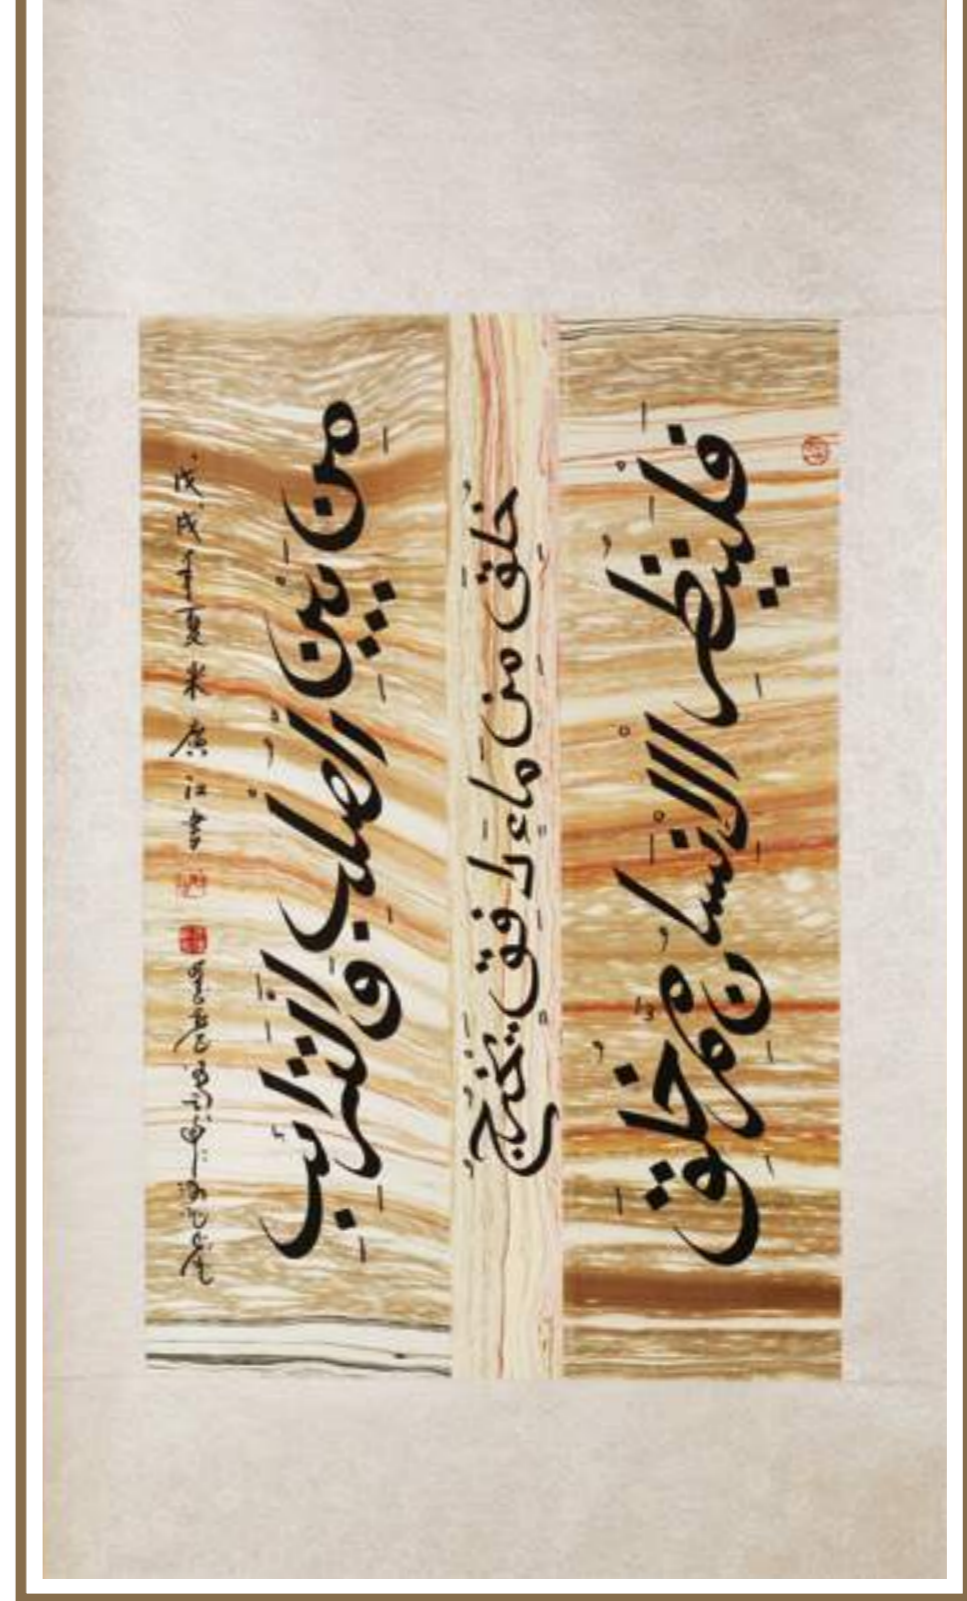 فلينظر الانسان مم خلق
خلق من ماء دافق يخرج
من بين الصلب والترائب
戊戌年夏米廣江書